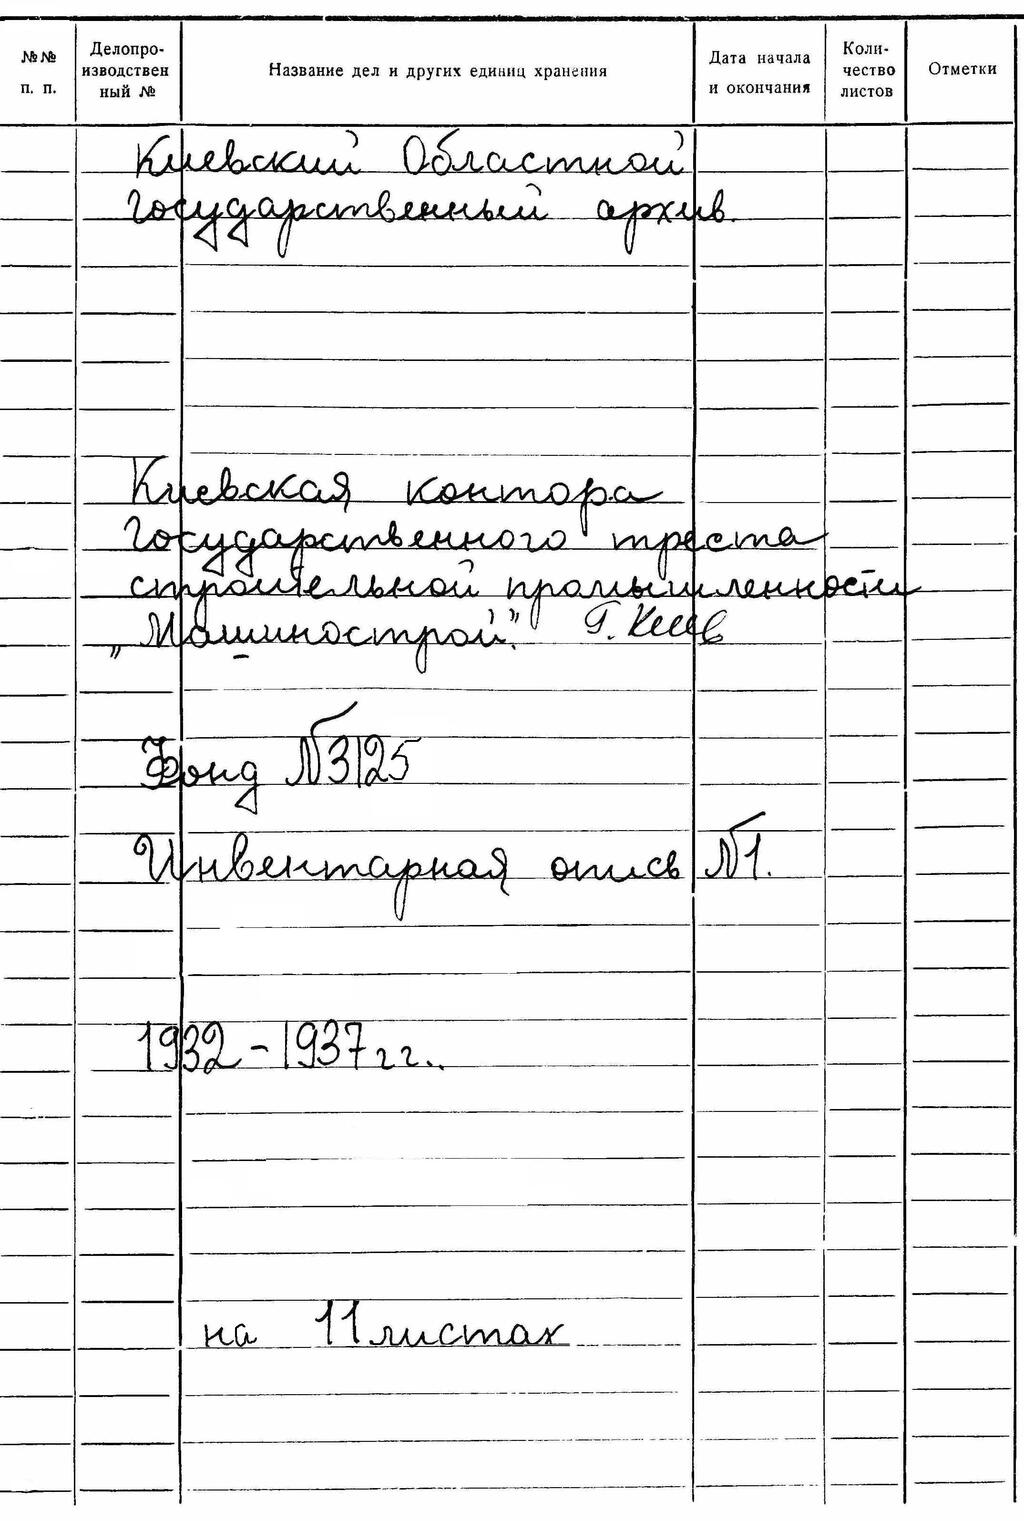 №№ п. п.
Делопро-
изводствен
ный №
Название дел и других единиц хранения
Дата начала
и окончания
Коли-
чество
листов
Отметки
Киевский Областной
Государственный архив.
Киевская контора
Государственного треста
строительной промышленности
„Машинострой". г. Киев
Фонд №3125
Инвентарная опись №1.
1932-1937гг..
на 11 листах